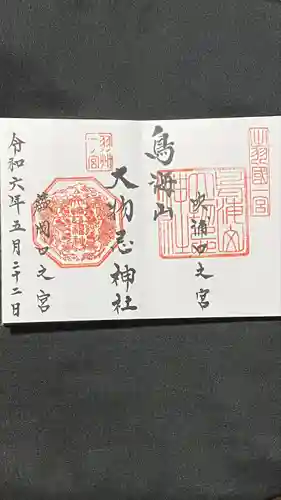 出羽國一宮
吹浦口之宮
鳥海山
大物忌神社
羽州
一ノ宮
蕨岡口之宮
令和六年五月二十二日